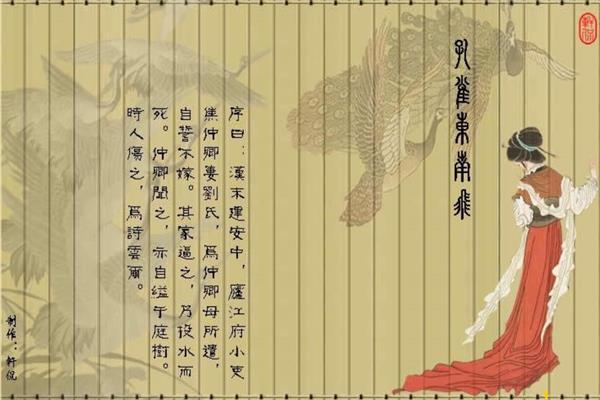 孔雀東南飛
序曰：漢末建安中，廬江府小吏
焦仲卿妻劉氏，爲仲卿母所遣，
自誓不嫁。其家逼之，乃投水而
死。仲卿聞之，亦自縊于庭樹。
時人傷之，爲詩雲爾。
制作：軒侃